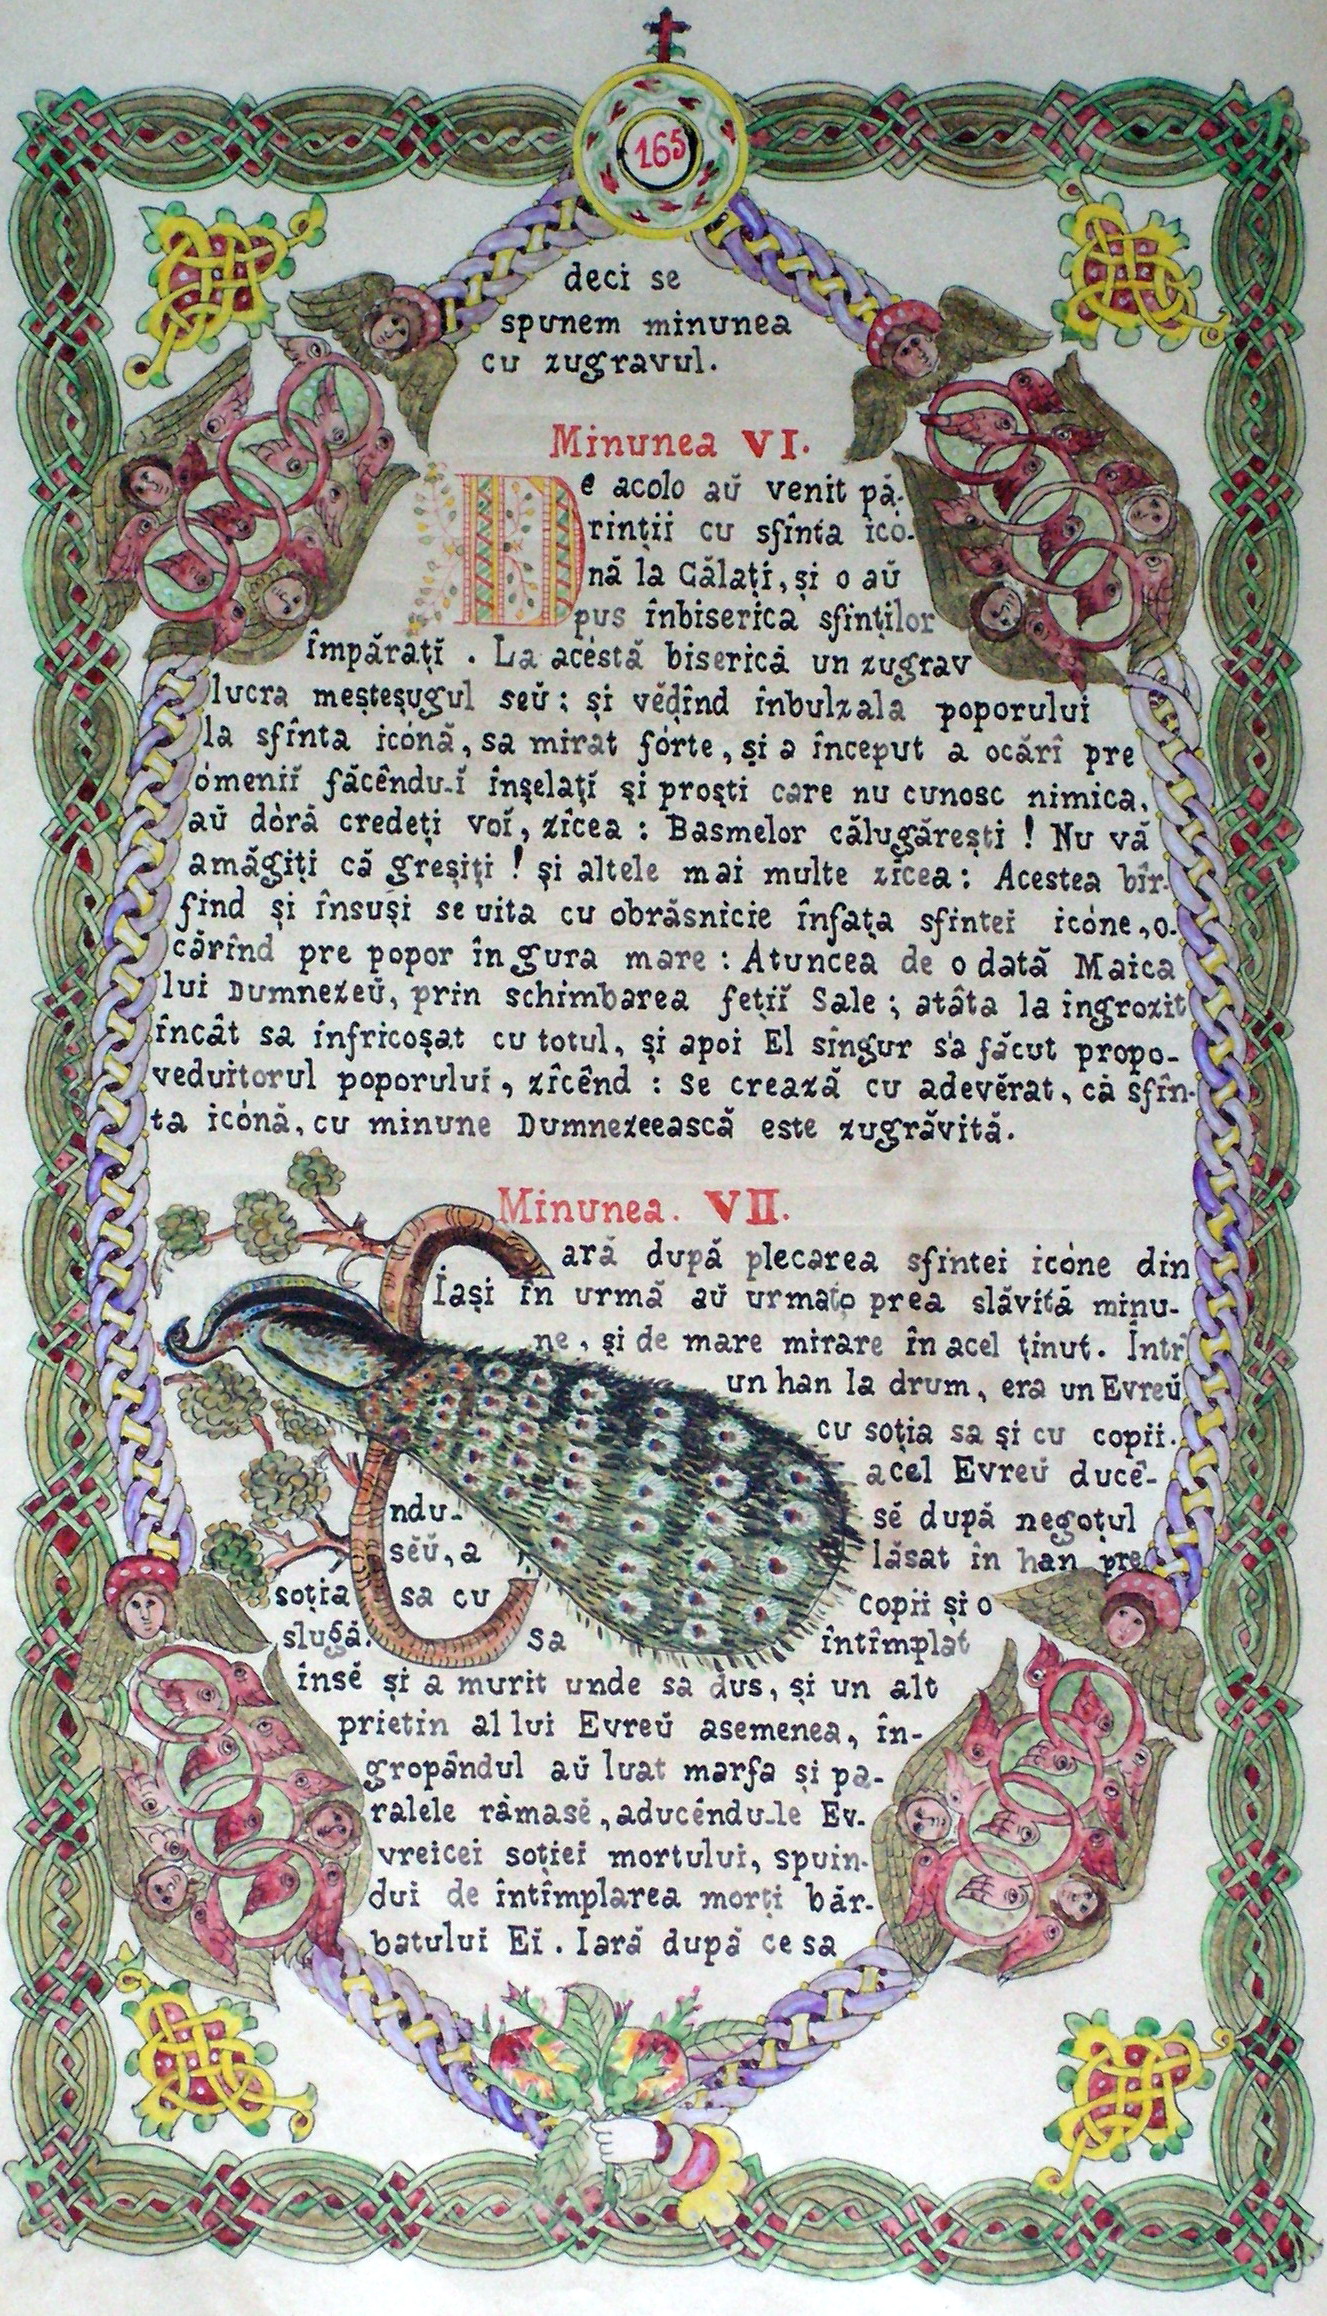 165
deci se
spunem minunea
cu zugravul.
Minunea VI.
De acolo aŭ venit pă-
rinții cu sfînta icó-
nă la Gălațĭ, și o aŭ
pus înbiserica sfinților
împărațĭ. La acéstă biserică un zugrav
lucra meșteșugul seŭ; și vĕḑînd înbulzala poporului
la sfînta icónă, sa mirat fórte, și a început a ocărî pre
ómeniĭ făcêndu-ĭ înșelațĭ și proști care nu cunosc nimica,
aŭ dóră credeți voĭ, zîcea: Basmelor călugărești! Nu vă
amăgiți că greșiți! și altele mai multe zîcea: Acestea bîr-
find și însuși se uita cu obrăsnicie înfața sfintei icóne, o-
cărînd pre popor în gura mare: Atuncea de o dată Maica
lui Dumnezeŭ, prin schimbarea fețiĭ Sale; atâta la îngrozit
încât sa înfricoșat cu totul, și apoi El sîngur s'a făcut propo-
veduitorul poporului, zîcênd: Se crează cu adevĕrat, că sfîn-
ta icónă, cu minune Dumnezeească este zugrăvită.
Minunea. VII.
ară după plecarea sfintei icóne din
Iași în urmă aŭ urmato prea slăvită minu-
ne, și de mare mirare în acel ținut. Într'
un han la drum, era un Evreŭ
cu soția sa și cu copii.
acel Evreŭ ducê-
ndu- sĕ după negoțul
sĕŭ, a lăsat în han pre
soția sa cu copii și o
slugă. Sa întîmplat
însĕ și a murit unde sa dus, și un alt
prietin al lui Evreŭ asemenea, în-
gropândul aŭ luat marfa și pa-
ralele râmasĕ, aducêndu-le Ev-
vreicei soției mortului, spuin-
dui de întîmplarea morți băr-
batului Ei. Iară după ce sa